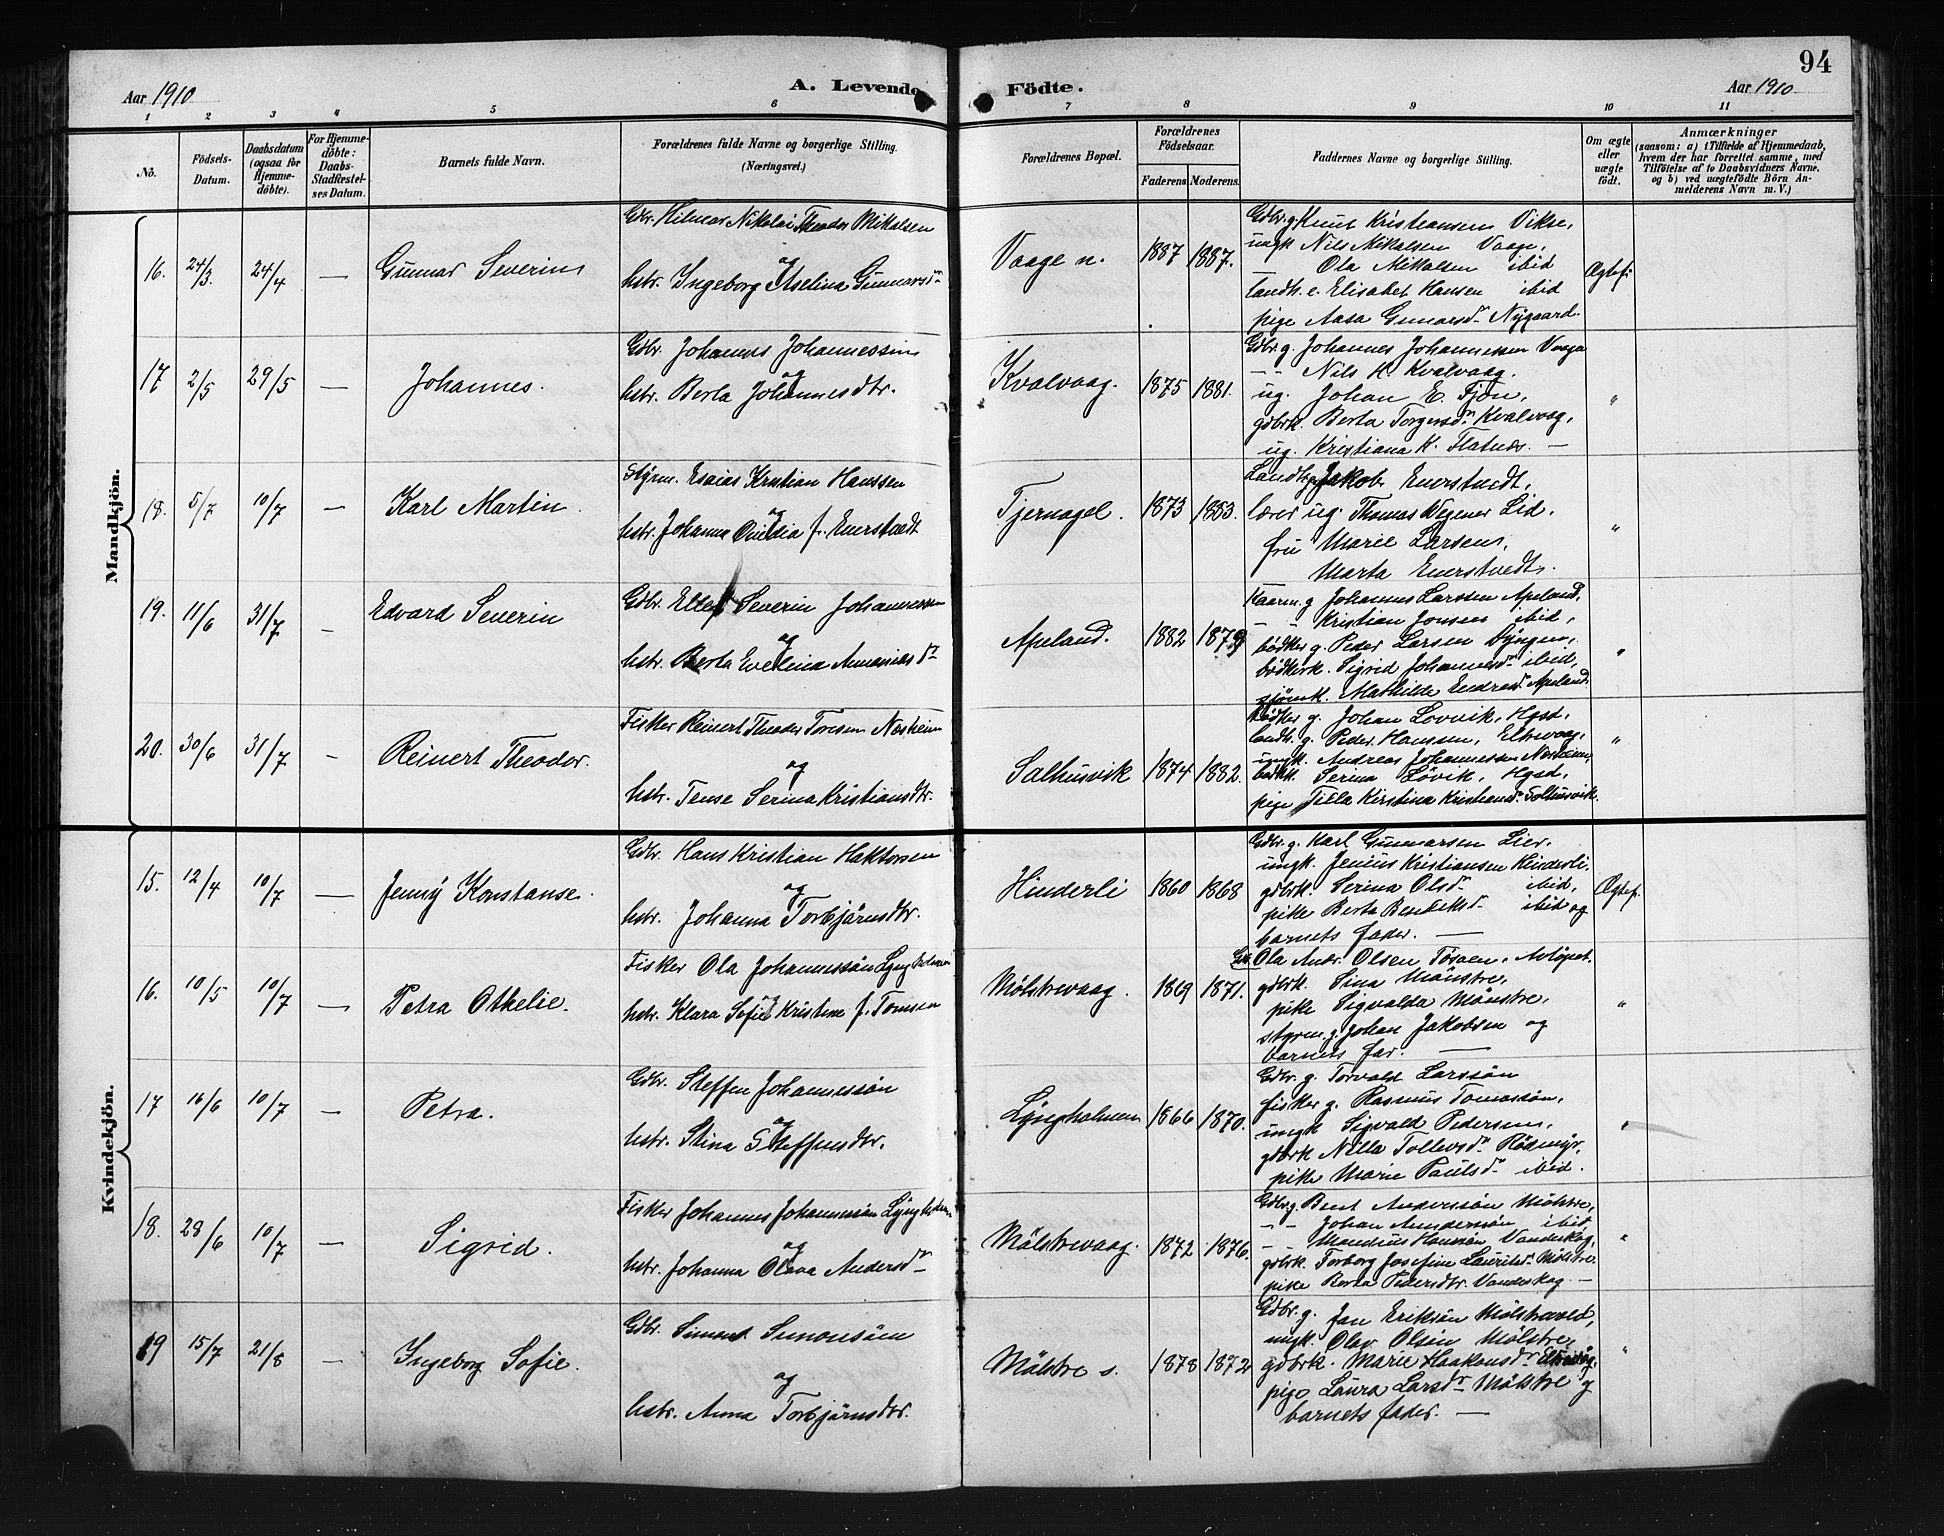 94
Aar 1910
A. Levende Födte.
Aar 1910
1 2 3 4 5 6 7 8 9 10 11
No.
Födsels-
Datum.
Daabsdatum
(ogsaa för
Hjemme-
döbte).
For Hjemme-
döbte:
Daabs-
Stadfæstel-
ses Datum.
Barnets fulde Navn.
Forældrenes fulde Navne og borgerlige Stilling.
(Næringsvei.)
Forældrenes Bopæl.
Forældrenes
Födselsaar.
Faderens. Moderens.
Faddernes Navne og borgerlige Stilling.
Om ægte
eller
uægte
födt.
Anmærkninger
(saasom: a) i Tilfælde af Hjemmedaab,
hvem der har forrettet samme, med
Tilföielse af to Daabsvidners Navne.
og b) ved uægtefödte Börn An-
melderens Navn m. V.)
Mandkjön.
16. 24/3. 24/4 — Gunnar Severin
Gbr. Hilmar Nikolai Theodor Mikalsen
og
hstr. Ingeborg Aselina Gunnarsdr
Vaage n. 1887 1887.
Gdbr. g. Knut Kristiansen Vikse,
ungk. Nils Mikalsen Vaage,
— Ola Mikalsen ibid
landh. e. Elisabet Hansen ibid
pige Aasa Gunarsdr Nygaard.
Ægtef.
17 2/5 29/5 — Johannes.
Gdbr. Johannes Johannessen
og
hstr. Berta Johannesdtr.
Kvalvaag. 1875 1881.
Gdbr. g. Johannes Johannessen Vaage
— Nils K. Kvalvaag.
ug. Johan E. Fjön,
gdbrk. Berta Torgersdr Kvalvaag,
ug. Kristiana K. Flatnes. —
"
18. 5/7 10/7 — Karl Martin
Styrm. Esaias Kristian Hanssen
og
hstr. Johanna Ovidia f. Enerstvedt
Tjernagel. 1873 1883.
Landh. g. Jakob Enerstvedt,
lærer ug. Thomas Wegener Lid,
fru Marie Larsen,
Marta Enerstvedt.
"
19. 11/6 31/7 — Edvard Severin
Gdbr. Ellef Severin Johannessen
og
hstr. Berta Evelina Annaniasdr
Apeland. 1882 1879
Kaarm. g. Johannes Larssen Apeland,
— — Kristian Jonsen ibid,
bödker g. Peder Larsen Dyngen,
bödkerk. Sigrid Johannesdr ibid,
sjömk. Mathilde Endresdr Apeland.
"
20. 30/6 31/7 — Reinert Theodor.
Fisker Reinert Theodor Toresen Nesheim
og
hstr. Tense Serina Kristiansdtr.
Salhusvik 1874 1882.
Bödker g. Johan Lövvik, Hgsd,
landh. g. Peder Hansen,
ungk. Andreas Johannessen Nesheim,
bödkk. Serina Lövik, Hgsd,
pige Tilla Kirstina Kristiansdr Salhusvik.
"
Kvindekjön.
15. 12/4 10/7 — Jenny Konstanse.
Gdbr. Hans Kristian Haktorsen
og
hstr. Johanna Torbjörnsdtr.
Hinderli 1860 1868
Gdbr. g. Karl Gunnarsen Lier.
ungk. Jenius Kristiansen Hinderli.
gdbrk. Serina Olsdr ibid,
pike Berta Bendiksdr ibid og
barnets fader. —
Ægtef.
16. 10/5 10/7 — Petra Othelie.
Fisker Ola Johannessön Lyngholmen
og
hstr. Klara Sofie Kristine f. Tomsen
Mølstrevaag. 1869 1871.
Gdbr. Ola Andr. Olsen
gdbrk. Sina Mölstre,
pike Sigvalda Mölstre,
styrm. g. Johan Jakobsen og
barnets far. —
"
17 16/6 10/7 — Petra.
Gdbr. Steffen Johannessön
og
hstr. Stina Steffensdtr.
Lyngholmen 1866 1870.
Gdbr. g. Torvald Larssön
fisker g. Rasmus Tomassön,
ungk. Sigvald Pedersen,
gdbrk. Nilla Tollevsdr Rödmyr,
pike Marie Paulsdr ibid.
"
18. 28/6 10/7 — Sigrid.
Fisker Johannes Johannessön Lyngholmen
og
hstr. Johanna Olava Andersdr
Mölstrevaag. 1872 1876.
Gdbr. g. Bent Anderssön Mölstre,
— — Johan Anderssön ibid,
— Mandius Hanssön Vandeskog,
gdbrk. Torborg Josefine Lauritsdr Mölstre
pike Berta Pedersdtr. Vandeskog —
"
19 15/7 21/8 — Ingeborg Sofie.
Gdbr. Simon Simonsön
og
hstr. Anna Torbjörnsdtr.
Mölstre s. 1878 1872
Gdbr. g. Jan Eriksön Mölstrevold,
ungk. Olav Olsön Mölstre,
gdbrk. Marie Haakonsdr
pige Laura Larsdr Mölstre og
barnets fader. —
"